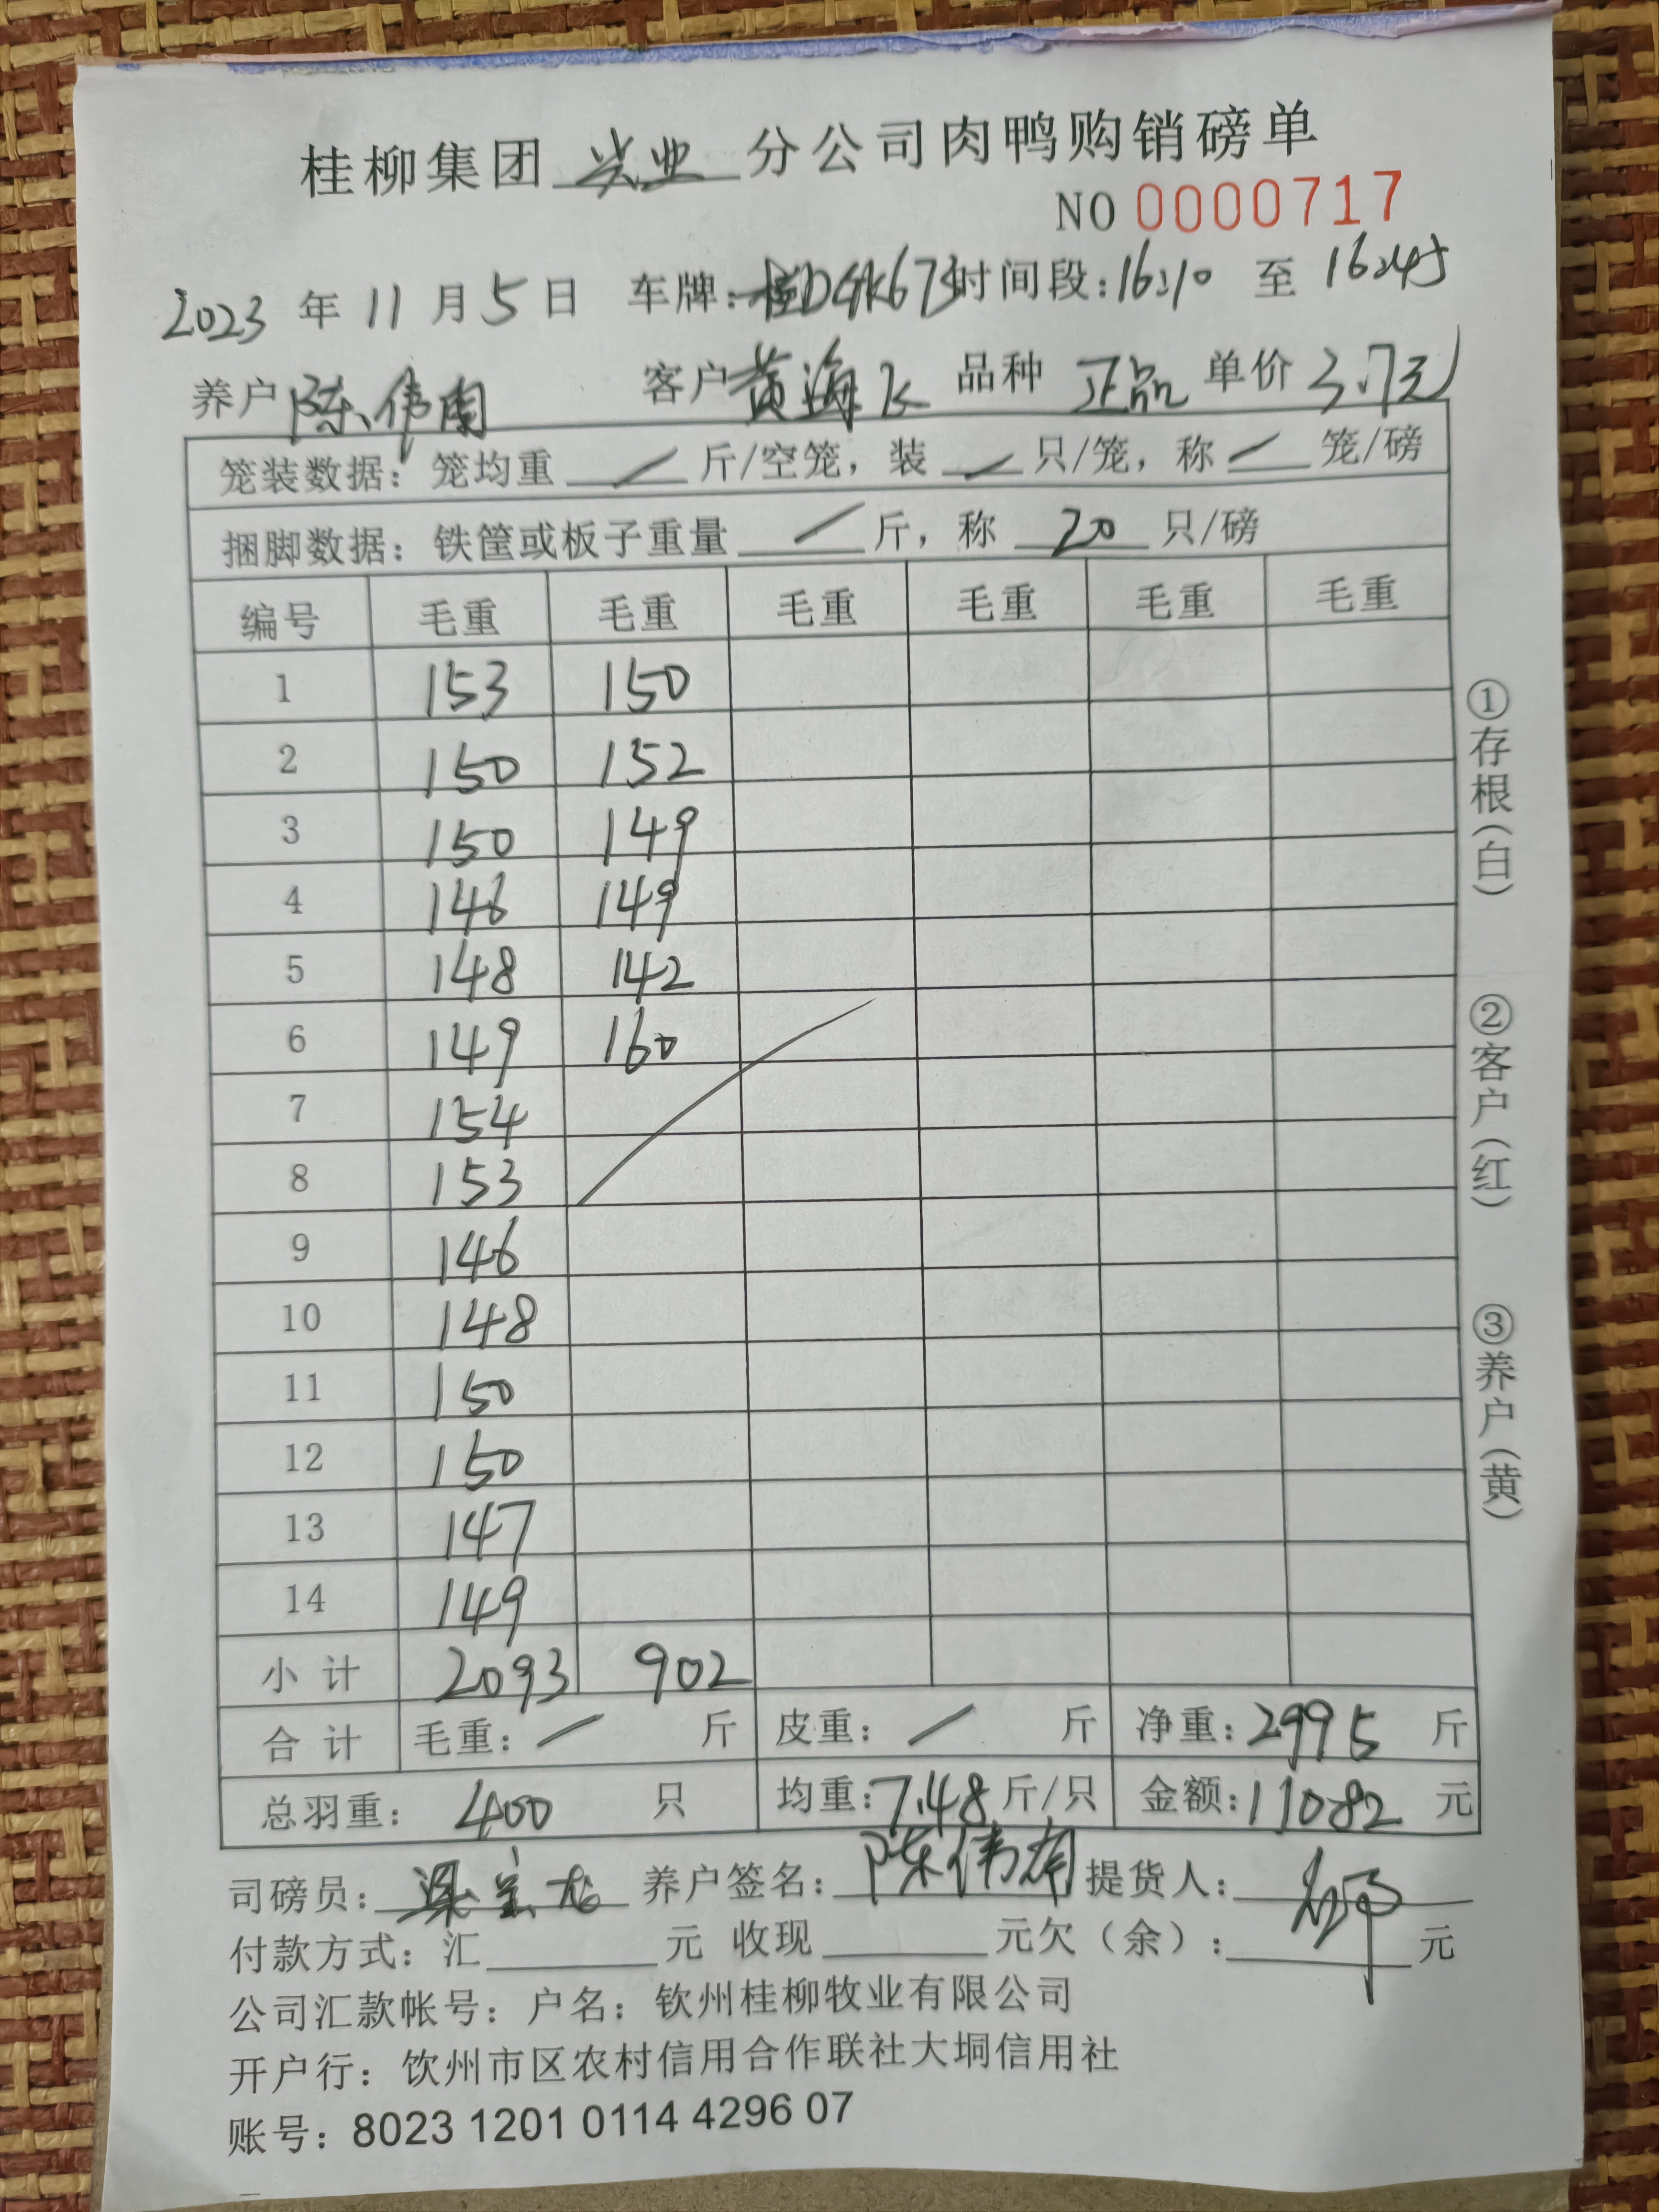 桂柳集团 兴业 分公司肉鸭购销磅单
NO 0000717
2023 年 11 月 5 日 车牌：桂DGK673 时间段：16:10 至 16:45
养户 陈伟南 客户 黄海飞 品种 正品 单价 3.7元
笼装数据：笼均重 / 斤/空笼，装 / 只/笼，称 / 笼/磅
捆脚数据：铁筐或板子重量 / 斤，称 20 只/磅
编号 毛重 毛重 毛重 毛重 毛重 毛重
1 153 150
2 150 152
3 150 149
4 146 149
5 148 142
6 149 160
7 154
8 153
9 146
10 148
11 150
12 150
13 147
14 149
小计 2093 902
合计 毛重：/ 斤 皮重：/ 斤 净重：2995 斤
总羽重：400 只 均重：7.48 斤/只 金额：11082 元
司磅员： 养户签名：陈伟南 提货人：
付款方式：汇 元 收现 元欠（余）： 元
公司汇款帐号：户名：钦州桂柳牧业有限公司
开户行：钦州市区农村信用合作联社大垌信用社
账号：8023 1201 0114 4296 07
①存根（白）
②客户（红）
③养户（黄）